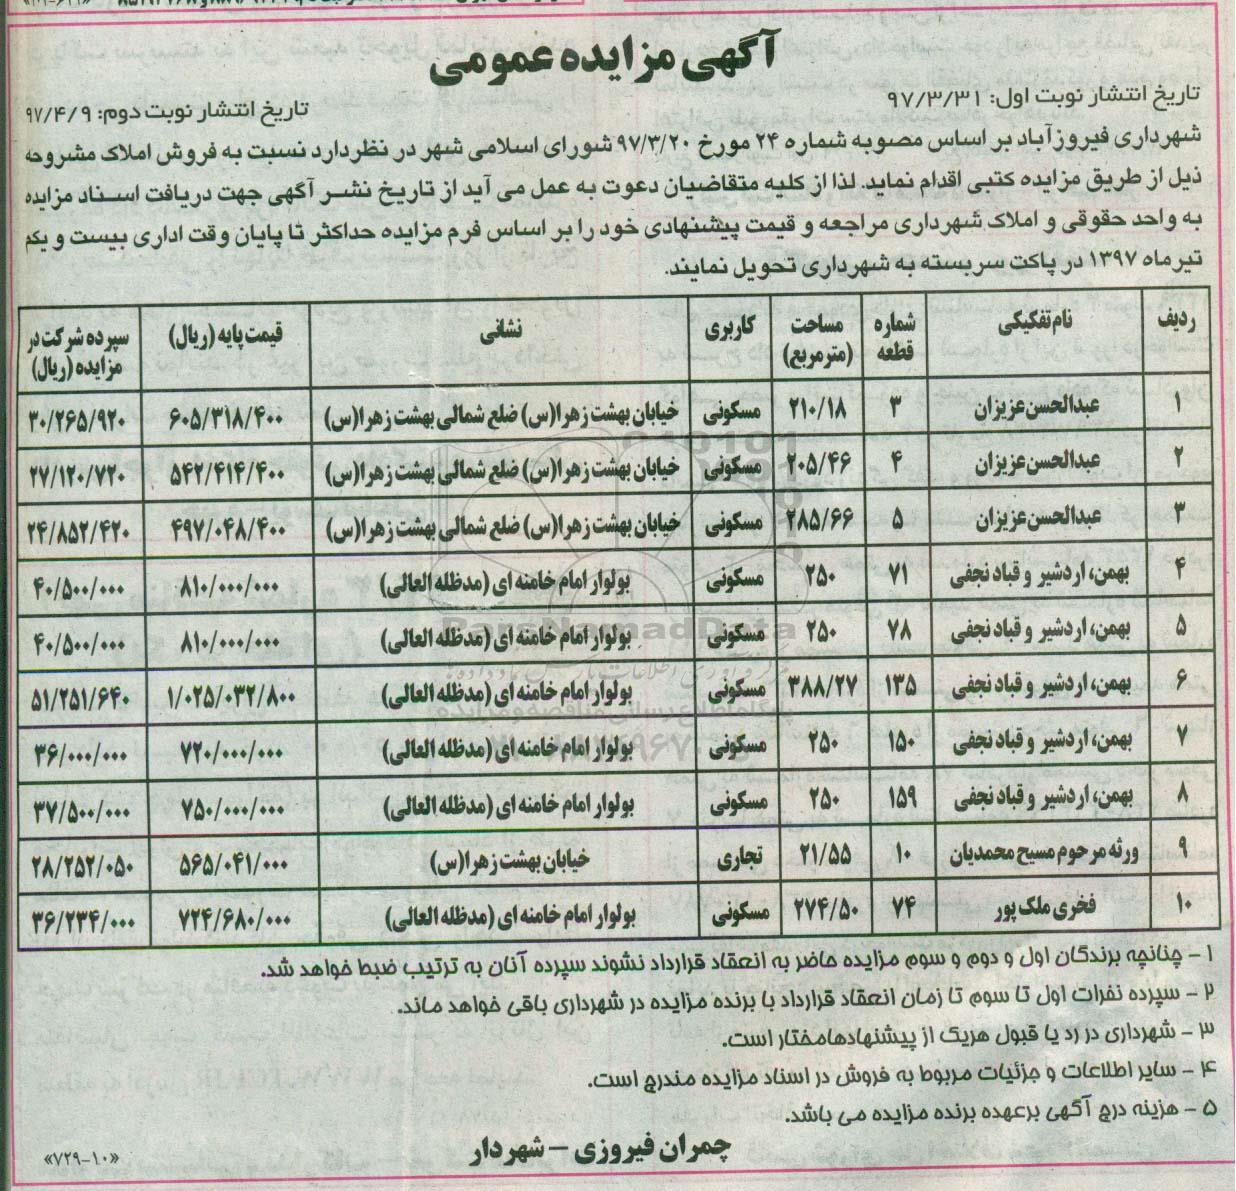 آگهی مزایده عمومی
تاریخ انتشار نوبت اول: ۹۷/۳/۳۱
تاریخ انتشار نوبت دوم: ۹۷/۴/۹
شهرداری فیروزآباد بر اساس مصوبه شماره ۲۴ مورخ ۹۷/۳/۲۰ شورای اسلامی شهر در نظر دارد نسبت به فروش املاک مشروحه
ذیل از طریق مزایده کتبی اقدام نماید. لذا از کلیه متقاضیان دعوت به عمل می آید از تاریخ نشر آگهی جهت دریافت اسناد مزایده
به واحد حقوقی و املاک شهرداری مراجعه و قیمت پیشنهادی خود را بر اساس فرم مزایده حداکثر تا پایان وقت اداری بیست و یکم
تیرماه ۱۳۹۷ در پاکت سربسته به شهرداری تحویل نمایند.
ردیف نام تفکیکی شماره قطعه مساحت (مترمربع) کاربری نشانی قیمت پایه (ریال) سپرده شرکت در مزایده (ریال)
۱ عبدالحسن عزیزان ۳ ۲۱۰/۱۸ مسکونی خیابان بهشت زهرا(س) ضلع شمالی بهشت زهرا(س) ۶۰۵/۳۱۸/۴۰۰ ۳۰/۲۶۵/۹۲۰
۲ عبدالحسن عزیزان ۴ ۲۰۵/۴۶ مسکونی خیابان بهشت زهرا(س) ضلع شمالی بهشت زهرا(س) ۵۴۲/۴۱۴/۴۰۰ ۲۷/۱۲۰/۷۲۰
۳ عبدالحسن عزیزان ۵ ۲۸۵/۶۶ مسکونی خیابان بهشت زهرا(س) ضلع شمالی بهشت زهرا(س) ۴۹۷/۰۴۸/۴۰۰ ۲۴/۸۵۲/۴۲۰
۴ بهمن، اردشیر و قباد نجفی ۷۱ ۲۵۰ مسکونی بولوار امام خامنه ای (مدظله العالی) ۸۱۰/۰۰۰/۰۰۰ ۴۰/۵۰۰/۰۰۰
۵ بهمن، اردشیر و قباد نجفی ۷۸ ۲۵۰ مسکونی بولوار امام خامنه ای (مدظله العالی) ۸۱۰/۰۰۰/۰۰۰ ۴۰/۵۰۰/۰۰۰
۶ بهمن، اردشیر و قباد نجفی ۱۳۵ ۳۸۸/۲۷ مسکونی بولوار امام خامنه ای (مدظله العالی) ۱/۰۲۵/۰۳۲/۸۰۰ ۵۱/۲۵۱/۶۴۰
۷ بهمن، اردشیر و قباد نجفی ۱۵۰ ۲۵۰ مسکونی بولوار امام خامنه ای (مدظله العالی) ۷۲۰/۰۰۰/۰۰۰ ۳۶/۰۰۰/۰۰۰
۸ بهمن، اردشیر و قباد نجفی ۱۵۹ ۲۵۰ مسکونی بولوار امام خامنه ای (مدظله العالی) ۷۵۰/۰۰۰/۰۰۰ ۳۷/۵۰۰/۰۰۰
۹ ورثه مرحوم مسیح محمدیان ۱۰ ۲۱/۵۵ تجاری خیابان بهشت زهرا(س) ۵۶۵/۰۴۱/۰۰۰ ۲۸/۲۵۲/۰۵۰
۱۰ فخری ملک پور ۷۴ ۲۷۴/۵۰ مسکونی بولوار امام خامنه ای (مدظله العالی) ۷۲۴/۶۸۰/۰۰۰ ۳۶/۲۳۴/۰۰۰
۱ - چنانچه برندگان اول و دوم و سوم مزایده حاضر به انعقاد قرارداد نشوند سپرده آنان به ترتیب ضبط خواهد شد.
۲ - سپرده نفرات اول تا سوم تا زمان انعقاد قرارداد با برنده مزایده در شهرداری باقی خواهد ماند.
۳ - شهرداری در رد یا قبول هریک از پیشنهادها مختار است.
۴ - سایر اطلاعات و جزئیات مربوط به فروش در اسناد مزایده مندرج است.
۵ - هزینه درج آگهی برعهده برنده مزایده می باشد.
چمران فیروزی – شهردار
«۷۲۹-۱۰»
ParsNamadData